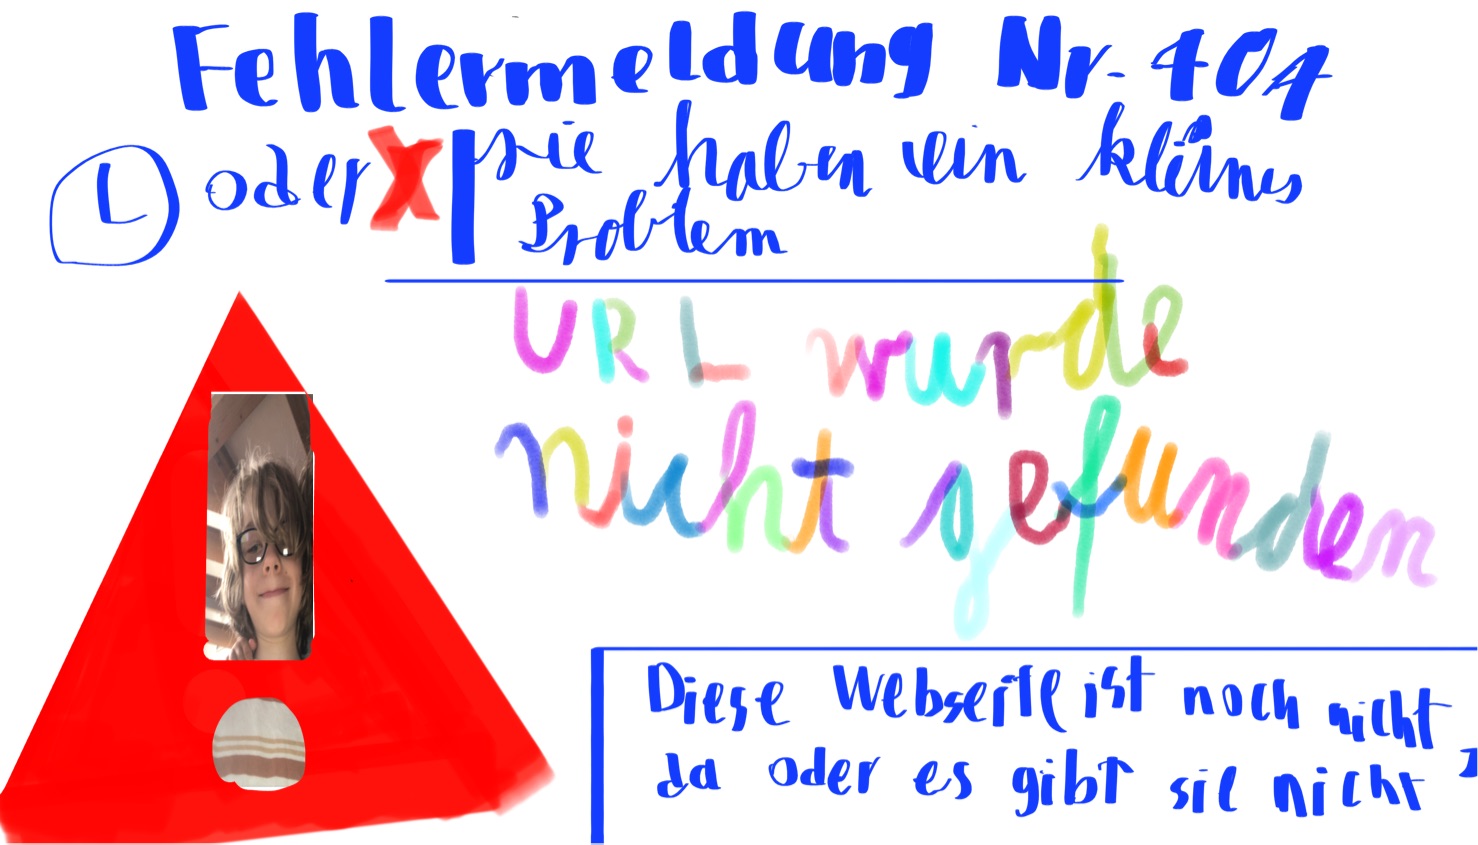 Fehlermeldung Nr. 404
L oder X sie haben ein kleines
Problem
URL wurde
nicht gefunden
Diese Webseite ist noch nicht
da oder es gibt sie nicht